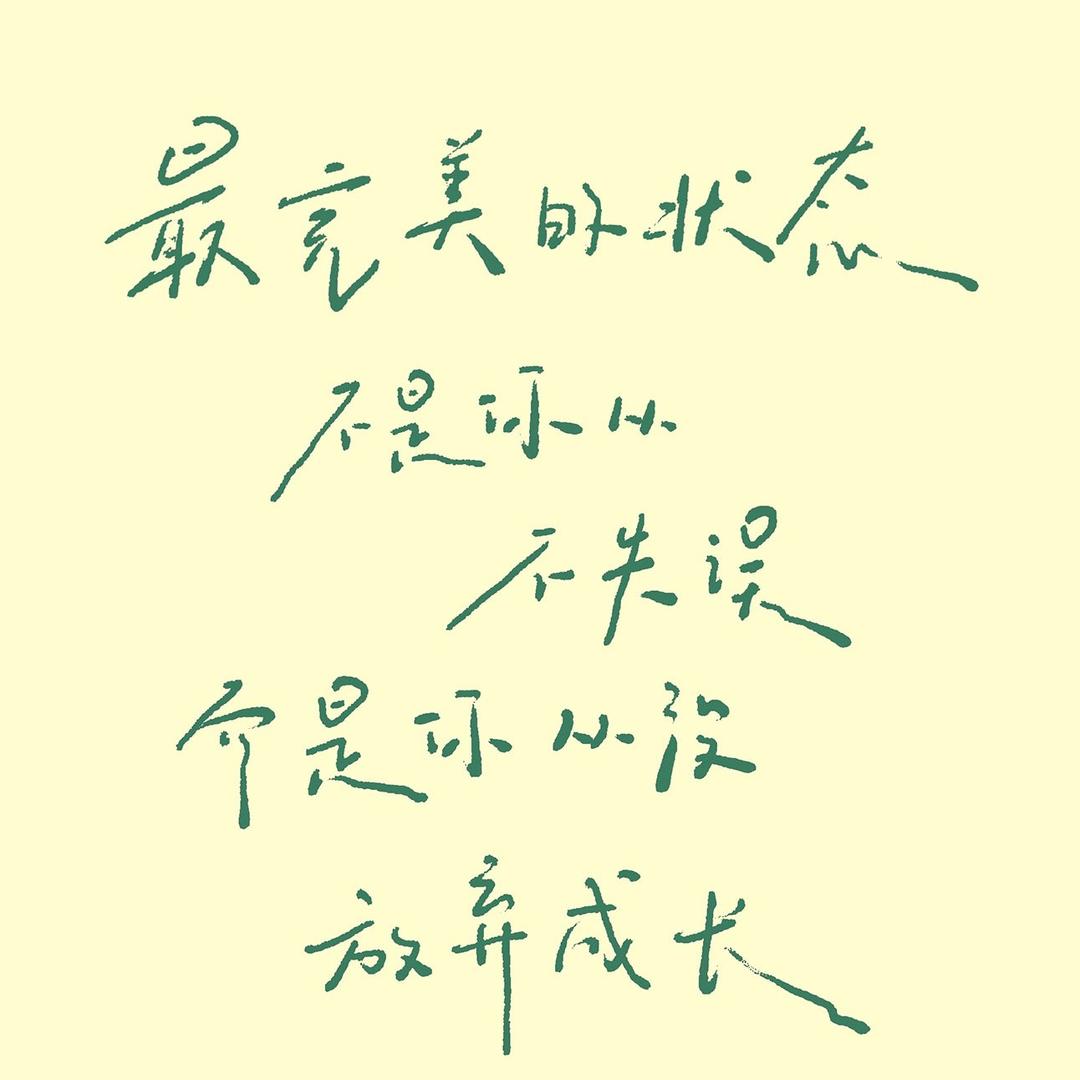 最完美的状态
不是你从
不失误
而是你从没
放弃成长